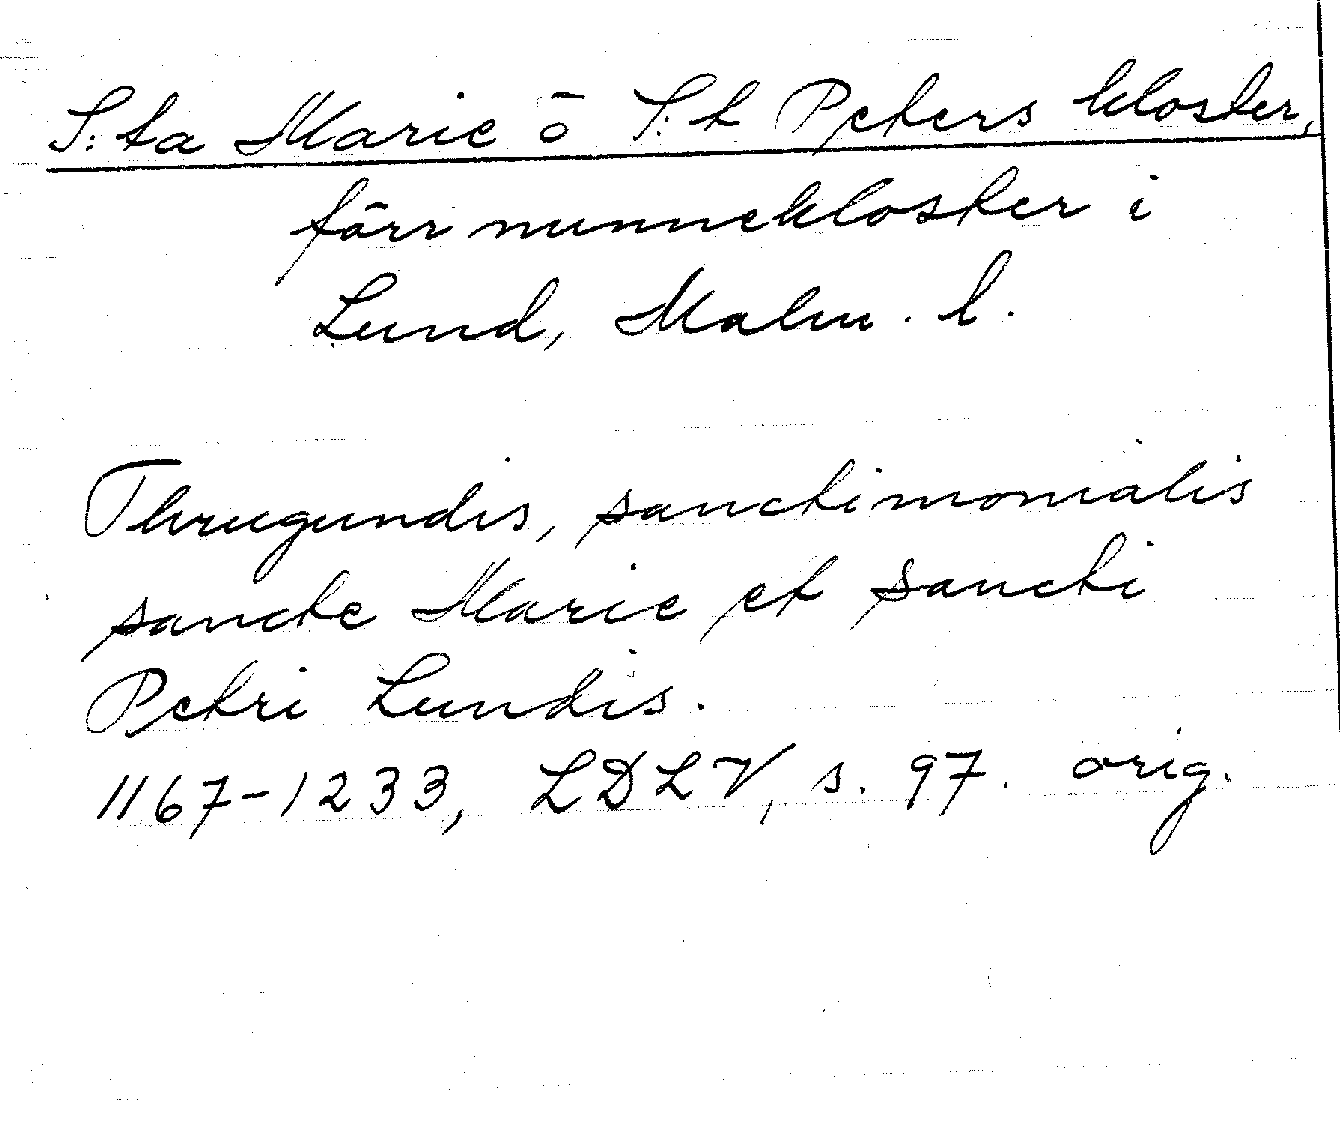 S:ta Marie o S:t Peters kloster,
förr nunnekloster i
Lund, Malm. l.
Thrugundis, sanctimonialis
sancte Marie et sancti
Petri Lundis.
1167-1233, LDLV, s. 97. orig.